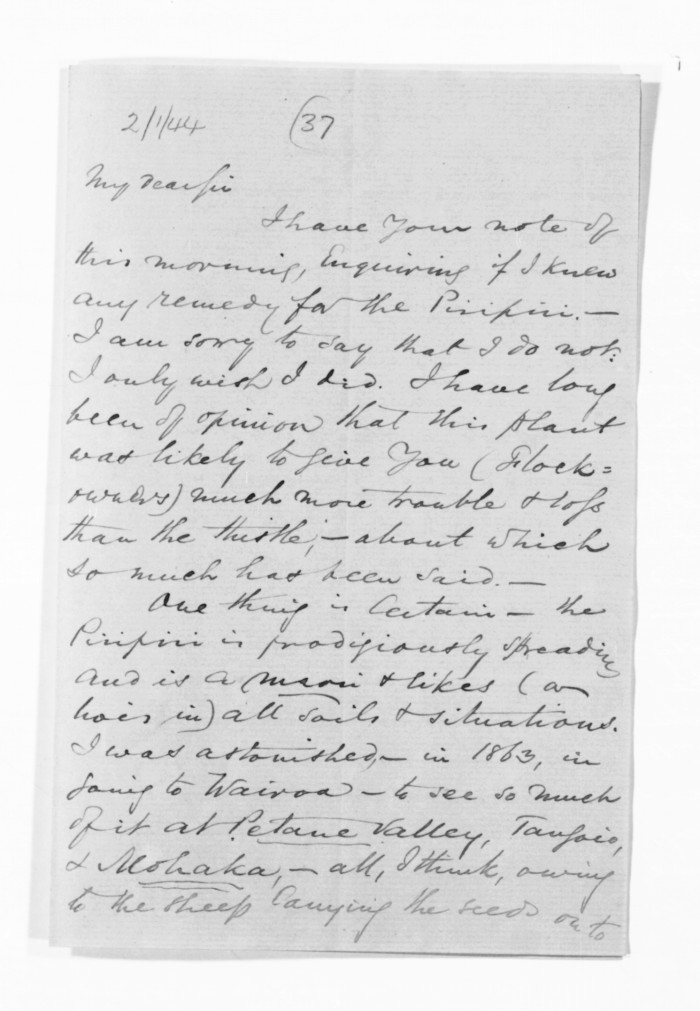 2/1/44 (37
My dear Sir
I have your note of
this morning, Enquiring if I knew
any remedy for the Piripiri. —
I am sorry to say that I do not:
I only wish I did. I have long
been of opinion that this plant
was likely to give you (Flock=
owners) much more trouble & loss
than the thistle, — about which
so much has been said. —
One thing is Certain — the
Piripiri is prodigiously spreading
and is a & likes (or
in) all soils & situations.
I was astonished, — in 1863, in
going to Wairoa — to see so much
of it at Petane Valley, Tangoio,
& Mohaka, — all, I think, owing
to the sheep Carrying the seeds on to